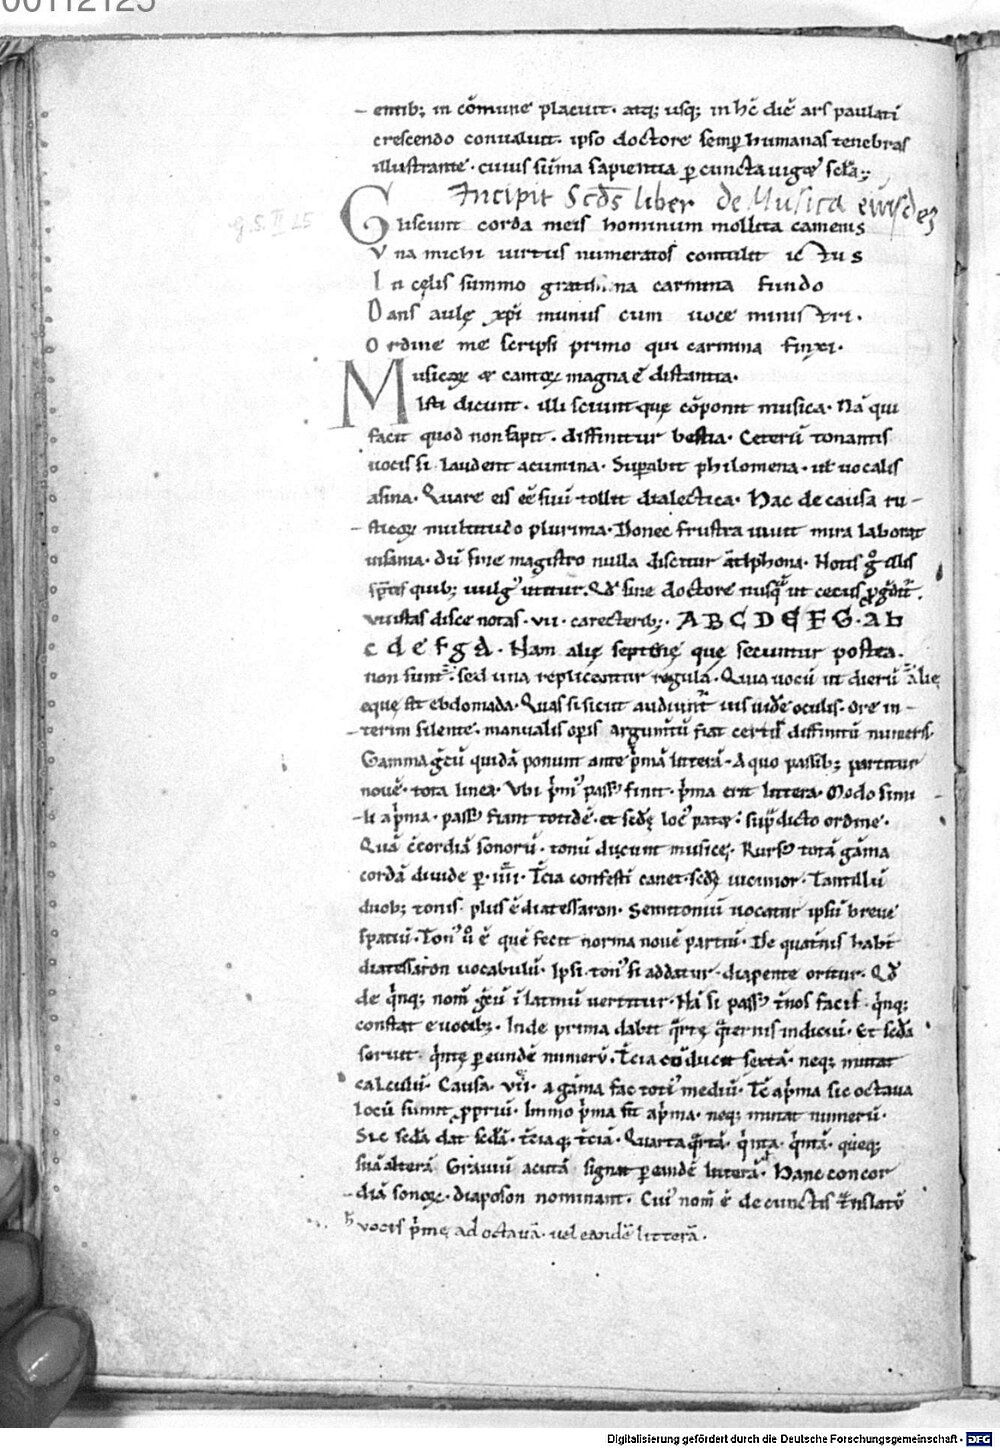 00112125
entib; in cōmune placuit. atq; usq; in hc̄ diē ars paulati
crescendo conualuit. ipso doctore semp humanas tenebras
illustrante. cuius sūma sapientia p cuncta uiget scla.
Incipit Scds liber de Musica eiusdez
g.S. II 25
Gliscunt corda meis hominum mollita camenis
Vna michi uirtus numeratos contulit ictus
In cęlis summo gratissima carmina fundo
Dans aulę xp̄i munus cum uoce ministri.
Ordine me scripsi primo qui carmina finxi.
Musicoꝝ et cantoꝝ magna ē distantia.
Isti dicunt. illi sciunt que cōponit musica. Nā qui
facit quod non sapit. diffinitur bestia. Ceterū tonantis
uocis si laudent acumina. Supabit philomena. ut uocalis
asina. Quare eis eē suū tollit dialectica. Hac de causa ru-
sticoꝝ multitudo plurima. Donec frustra uiuit mira laborat
insania. dū sine magistro nulla discitur antiphona. Notis gͦ illis
sptis quib; uulg' utitur. Qd̄ sine doctore nusq̄ ut cecus pgdit̄.
uisitas disce notas. vii. carecterib;. A B C D E F G. a b
c d e f g a. Nam alię septem que secuntur postea.
non sunt. sed una replicentur regula. Quia uocū ut dierū alię
eque st̄ ebdomada. Quas si sicut audiunt uis uide oculis. ore in-
terim silente. manualis opis argumtū fiat certis diffinitū numeris.
Gamma gcū quidā ponunt ante pmā litterā. A quo passib; partitur
nouē. tota linea. Vbi pm' pass' finit. pma erit littera. Modo simi
-li a pma. pass' fiant totidē. et scdę loc' patet. supdicto ordine.
Quā c̄cordiā sonorū. tonū ducunt musice. Rurs' totā gāma
cordā diuide p. iiii. Tcia confesti canet. scdę uicinior. Tantillū
duob; tonis. plus ē diatessaron. Semitoniū uocatur ipsū breue
spatiū. Ton' u ē que fecit norma nouē partiū. De quatnis habt
diatessaron uocabulū. Ipsi ton' si addatur. diapente oritur. Qd̄
de qnq; nom gcū ī latinū uertitur. Nā si pass' tnos facis. qnq;
constat e uocib;. Inde prima dabit qrtę qternis indiciū. Et scda
seruit. qntę p eundē numerū. Tcia conducit sextā. neq; mutat
calculū. Causa. vii. a gāma fac toti' mediū. Tc̄ a pma sic octaua
locū sumit ppriū. Immo pma fit a pma. neq; mutat numerū.
Sic scdā dat scdā. tcia q; tciā. Quarta qrtā. qnta. qntā. queq;
suā alterā Grauiū acutā signat p eundē litterā. Hanc concor
-diā sonoꝝ. diapason nominant. Cui' nom ē de cunctis tnslatū
vocis pme ad octauā. uel eandē litterā.
Digitalisierung gefördert durch die Deutsche Forschungsgemeinschaft - DFG